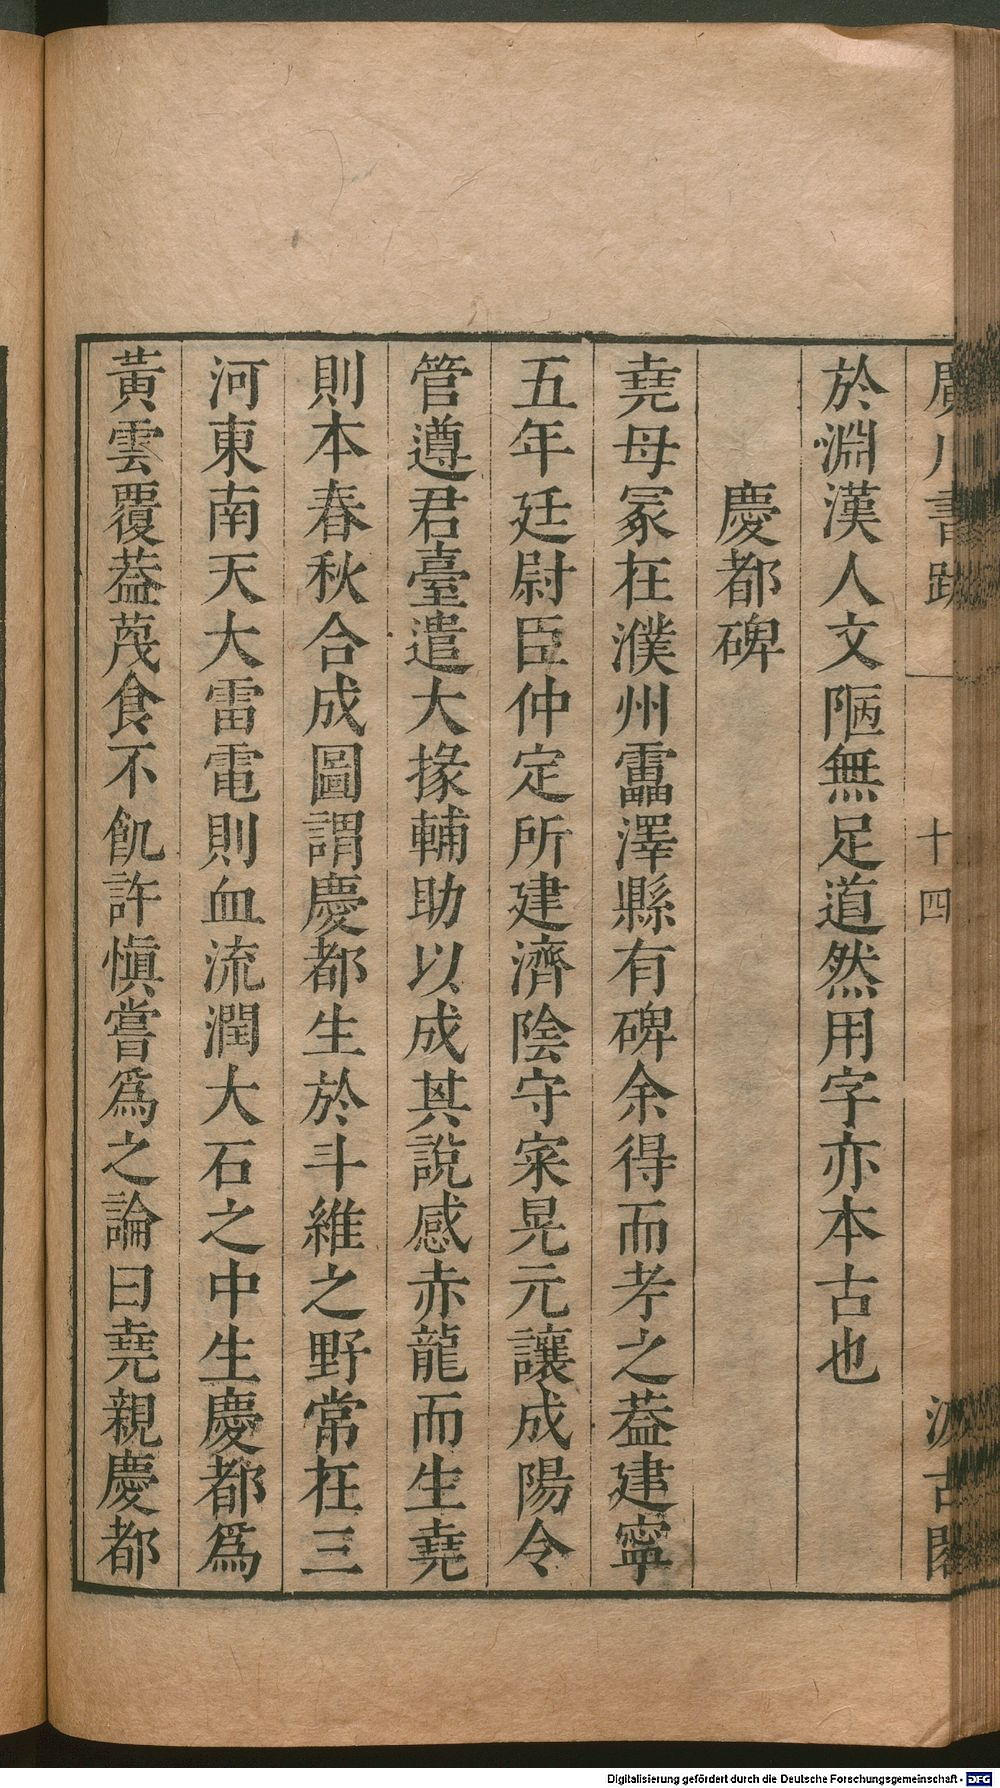 廣川書跋 十四 汲古閣
於淵漢人文陋無足道然用字亦本古也
慶都碑
堯母冢在濮州靁澤縣有碑余得而考之葢建寧
五年廷尉臣仲定所建濟陰守宋晃元讓成陽令
管遵君臺遣大掾輔助以成其說感赤龍而生堯
則本春秋合成圖謂慶都生於斗維之野常在三
河東南天大雷電則血流潤大石之中生慶都爲
黃雲覆葢茂食不飢許愼嘗爲之論曰堯親慶都
Digitalisierung gefördert durch die Deutsche Forschungsgemeinschaft - DFG